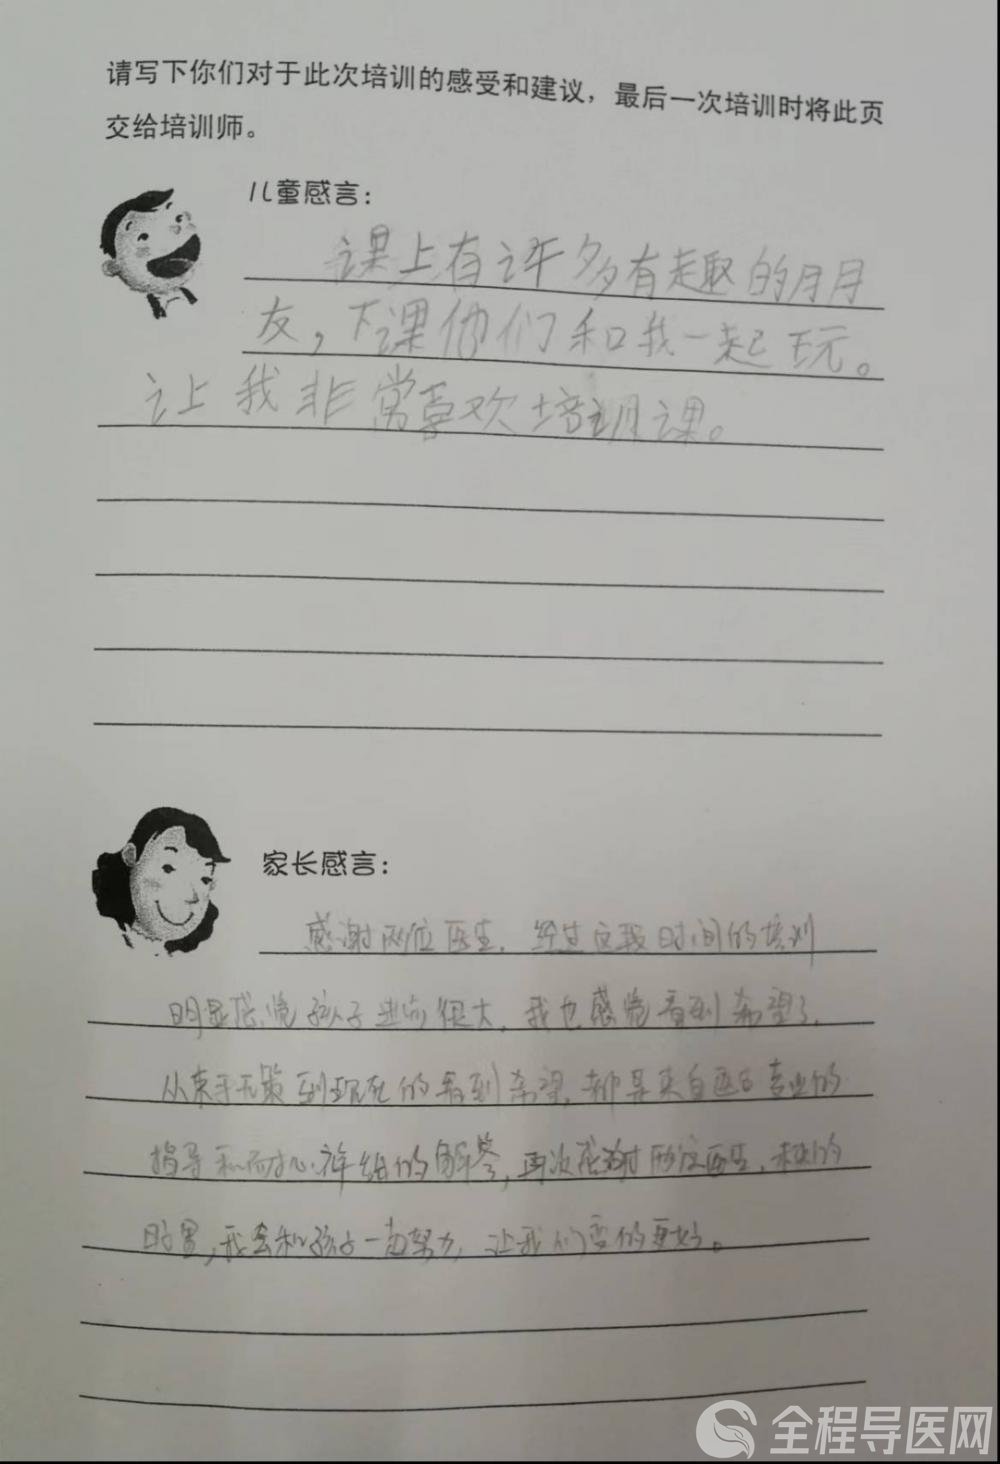 请写下你们对于此次培训的感受和建议，最后一次培训时将此页
交给培训师。
儿童感言：
课上有许多有趣的朋
友，下课他们和我一起玩。
让我非常喜欢培训课。
家长感言：
感谢两位医生，经过这段时间的培训
明显感觉孩子进步很大，我也感觉看到希望了，
从束手无策到现在的看到希望，都是来自医生专业的
指导和耐心详细的解答，再次感谢两位医生，未来的
时光，我会和孩子一起努力，让我们变的更好。
全程导医网